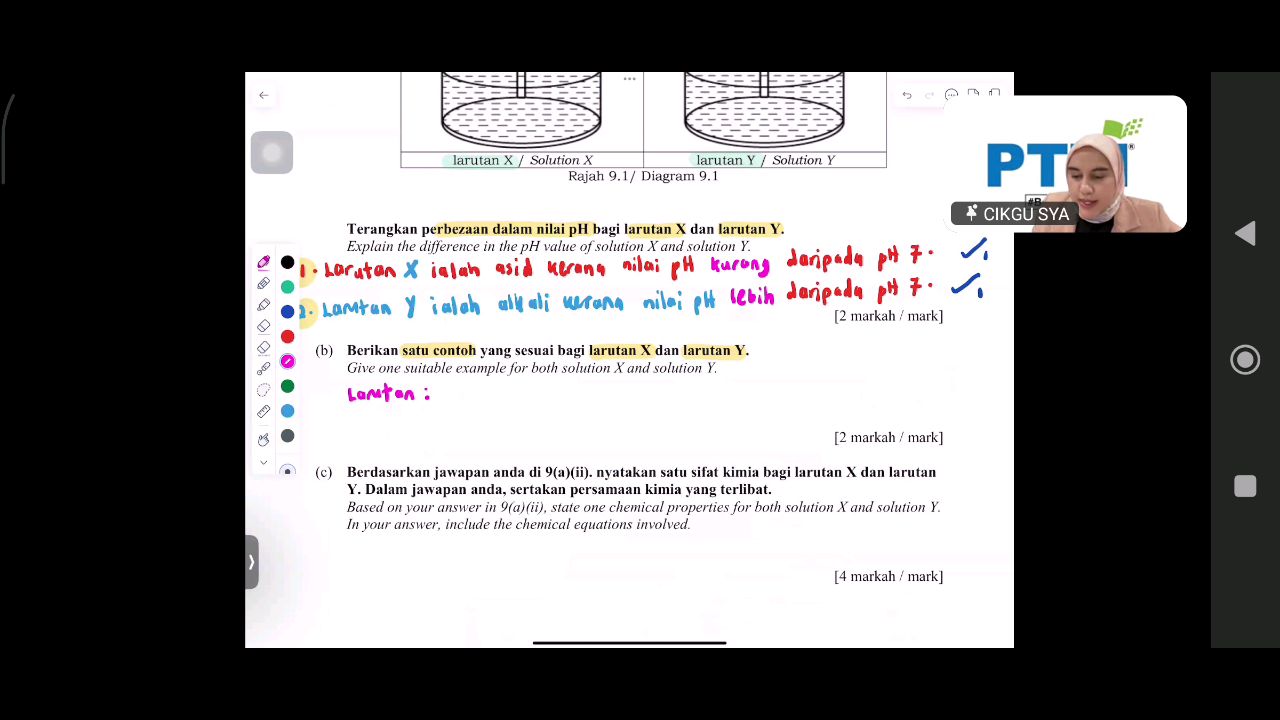 larutan X / Solution X
larutan Y / Solution Y
Rajah 9.1/ Diagram 9.1
CIKGU SYA
Terangkan perbezaan dalam nilai pH bagi larutan X dan larutan Y.
Explain the difference in the pH value of solution X and solution Y.
1. Larutan X ialah asid kerana nilai pH kurang daripada pH 7.
2. Larutan Y ialah alkali kerana nilai pH lebih daripada pH 7.
[2 markah / mark]
(b) Berikan satu contoh yang sesuai bagi larutan X dan larutan Y.
Give one suitable example for both solution X and solution Y.
Larutan :
[2 markah / mark]
(c) Berdasarkan jawapan anda di 9(a)(ii). nyatakan satu sifat kimia bagi larutan X dan larutan
Y. Dalam jawapan anda, sertakan persamaan kimia yang terlibat.
Based on your answer in 9(a)(ii), state one chemical properties for both solution X and solution Y.
In your answer, include the chemical equations involved.
[4 markah / mark]